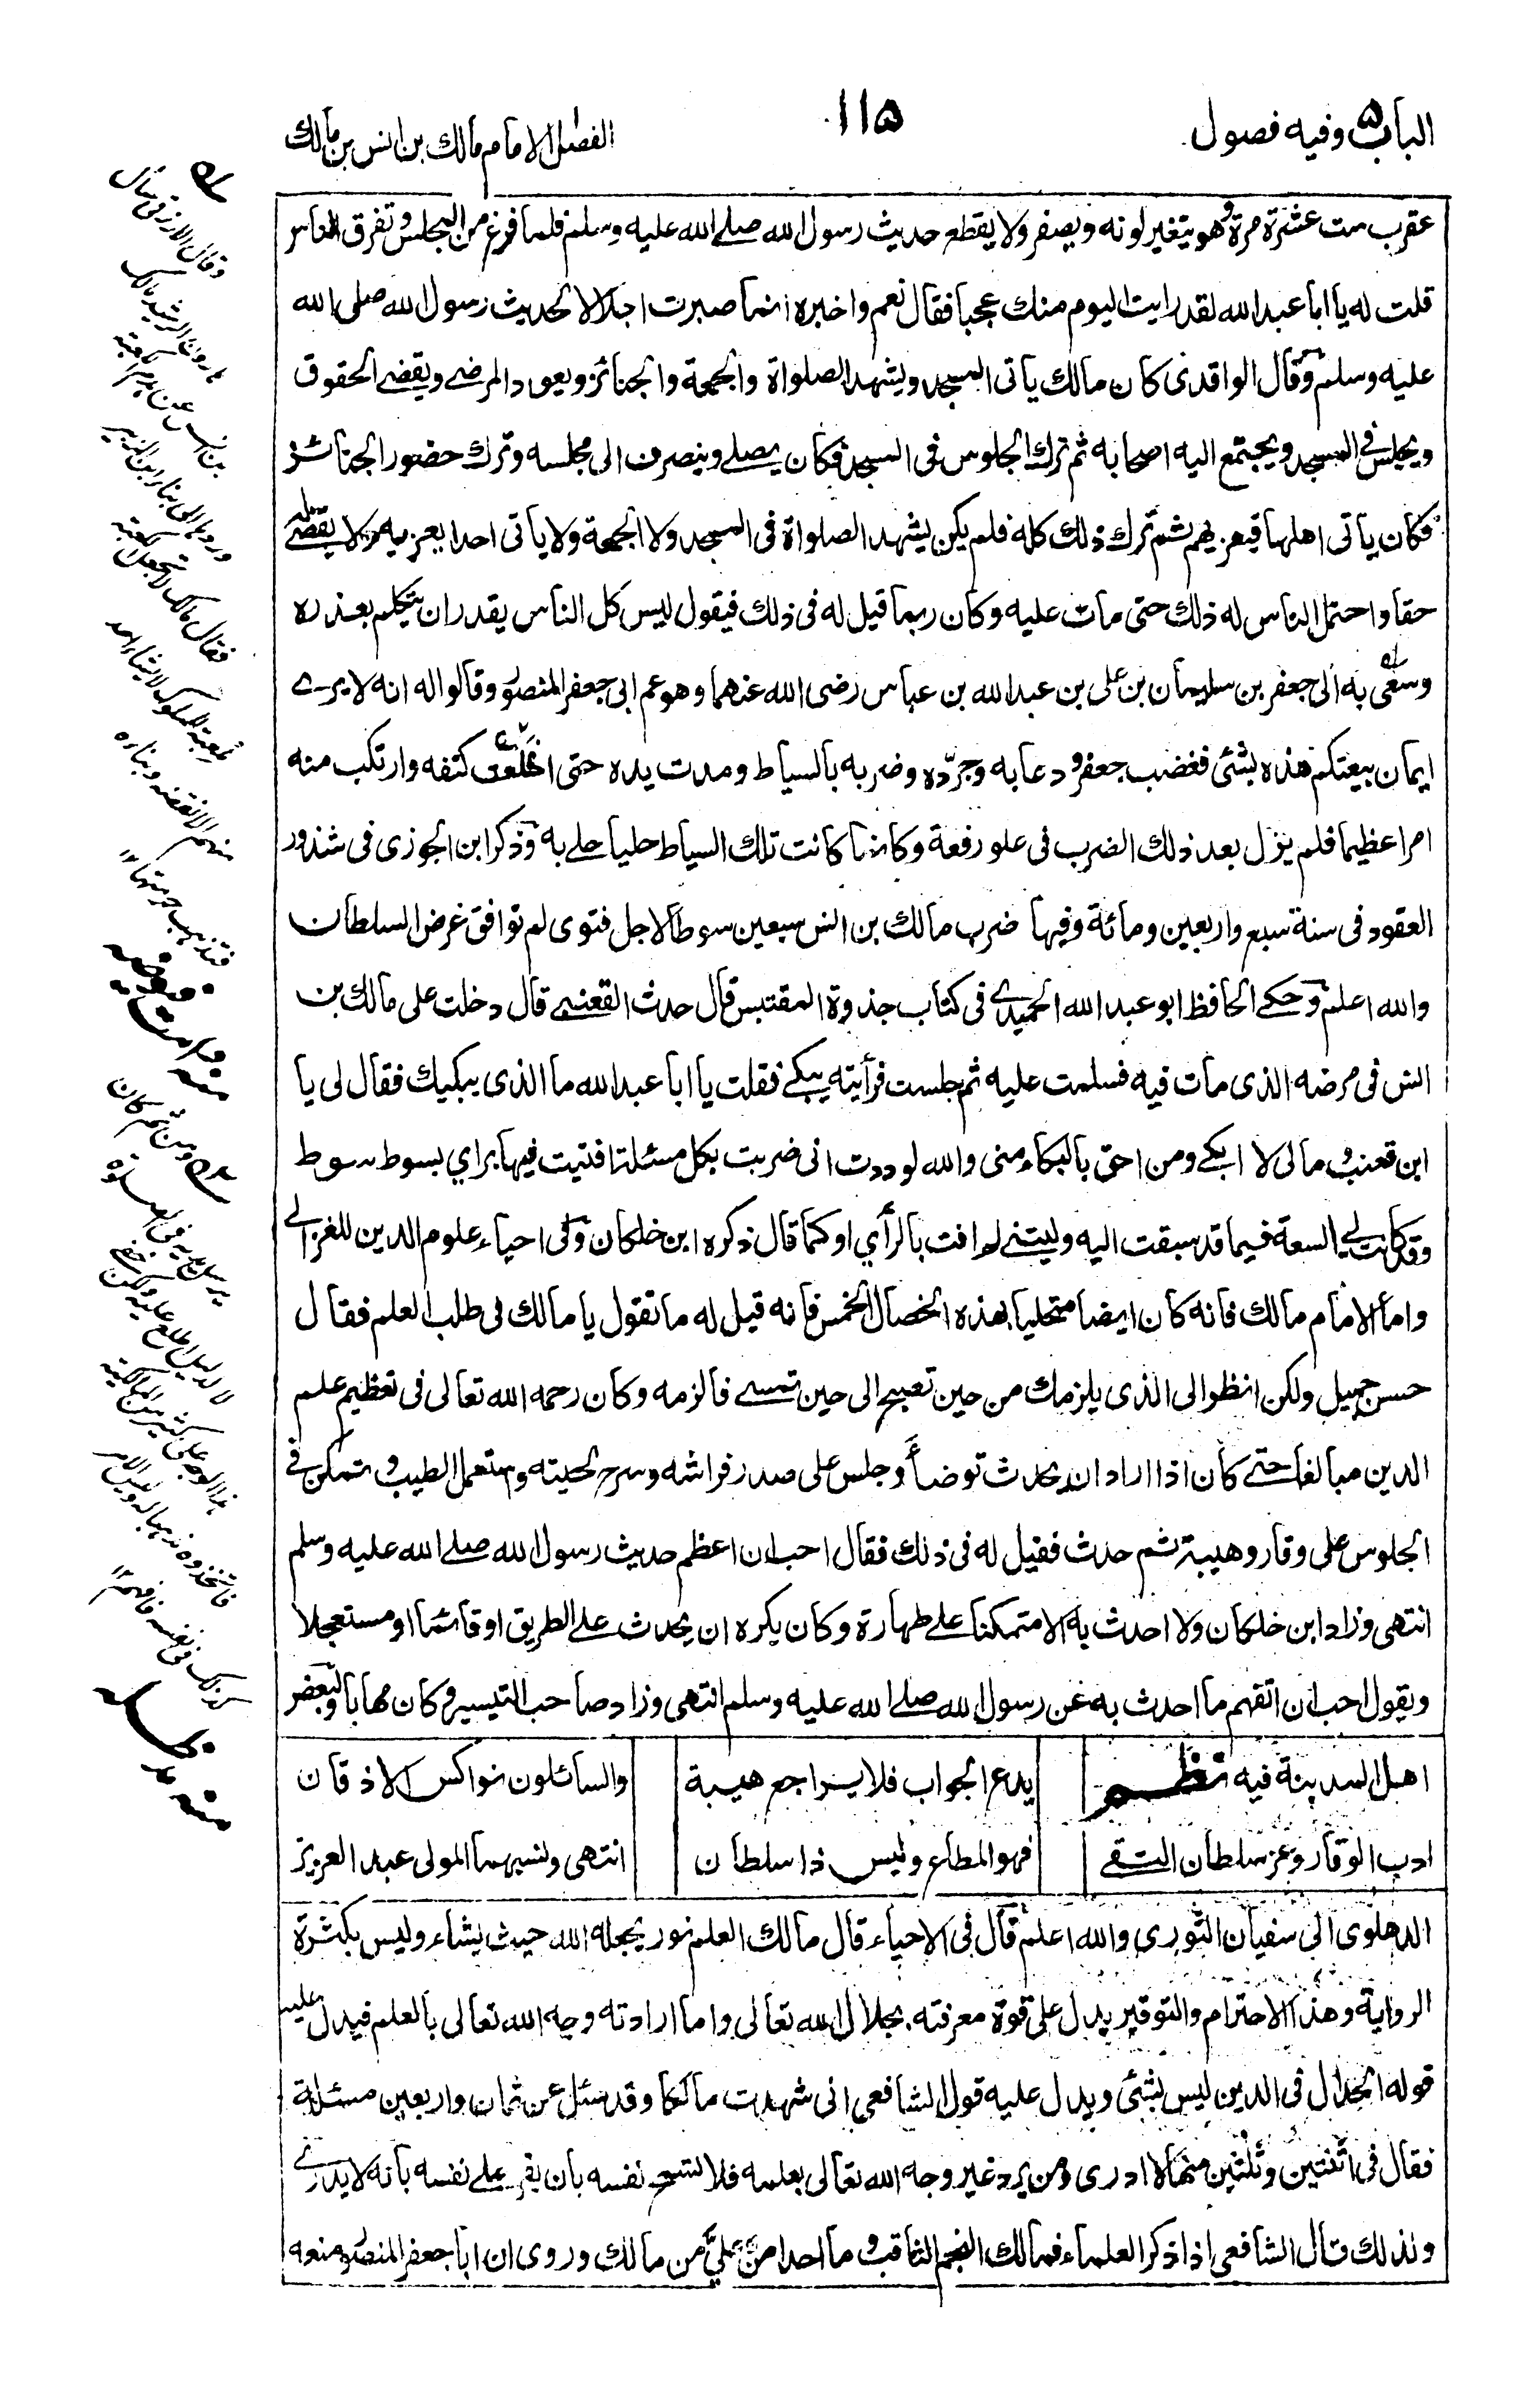 الباب ۵ وفيه فصول
۱۱۵
الفصل الامام مالك بن انس بن مالك
عقرب ست عشرة مرة وهو يتغير لونه ويصفر ولا يقطع حديث رسول الله صلے الله عليه وسلم فلما فرغ من المجلس وتفرق الناس
قلت له يا ابا عبد الله لقد رايت اليوم منك عجبا فقال نعم واخبره انما صبرت اجلالا لحديث رسول الله صلى الله
عليه وسلم وقال الواقدى كان مالك ياتى المسجد ويشهد الصلواة والجمعة والجنائز ويعود المرضے ويقضے الحقوق
ويجلس فى المسجد ويجتمع اليه اصحابه ثم ترك الجلوس فى المسجد فكان يصلے وينصرف الى مجلسه وترك حضور الجنائز
فكان ياتى اهلها فيعزيهم ثم ترك ذلك كله فلم يكن يشهد الصلواة فى المسجد ولا الجمعة ولا ياتى احدا يعزيه ولا يقضے له
حقا واحتمل الناس له ذلك حتى مات عليه وكان ربما قيل له فى ذلك فيقول ليس كل الناس يقدر ان يتكلم بعذره
وسعى به الى جعفر بن سليمان بن على بن عبد الله بن عباس رضى الله عنهما وهو عم ابى جعفر المنصور وقالوا له انه لا يرے
ايمان بيعتكم هذه بشئ فغضب جعفر ودعا به وجرّده وضربه بالسياط ومدت يده حتى انخلعت كتفه وارتكب منه
امرا عظيما فلم يزل بعد ذلك الضرب فى علو رفعة وكانما كانت تلك السياط حليا حلے به وذكر ابن الجوزى فى شذور
العقود فى سنة سبع واربعين ومائة وفيها ضرب مالك بن انس سبعين سوطا لاجل فتوى لم توافق غرض السلطان
والله اعلم وحكے الحافظ ابو عبد الله الحميدے فى كتاب جذوة المقتبس قال حدث القعنبے قال دخلت على مالك بن
انس فى مرضه الذى مات فيه فسلمت عليه ثم جلست فرأيته يبكے فقلت يا ابا عبد الله ما الذى يبكيك فقال لى يا
ابن قعنب وما لى لا ابكے ومن احق بالبكاء منى والله لوددت انى ضربت بكل مسئلة افتيت فيها براي بسوط سوط
وقد كانت لے السعة فيما قد سبقت اليه وليتنے لم افت بالرأي او كما قال ذكره ابن خلكان وفى احياء علوم الدين للغزالے
واما الامام مالك فانه كان ايضا متحليا بهذه الخصال الخمس فانه قيل له ما تقول يا مالك فى طلب العلم فقال
حسن جميل ولكن انظر الى الذى يلزمك من حين تصبح الى حين تمسے فالزمه وكان رحمه الله تعالى فى تعظيم علم
الدين مبالغا حتے كان اذا اراد ان يحدث توضأ وجلس على صدر فراشه وسرح لحيته واستعمل الطيب وتمكن فى
الجلوس على وقار وهيبة ثم حدث فقيل له فى ذلك فقال احب ان اعظم حديث رسول الله صلے الله عليه وسلم
انتهى وزاد ابن خلكان ولا احدث به الا متمكنا علے طهارة وكان يكره ان يحدث علے الطريق او قائما او مستعجلا
ويقول احب ان اتفهم ما احدث به عن رسول الله صلے الله عليه وسلم انتهى وزاد صاحب التيسير وكان مهابا ولبعض
اهل المدينة فيه نظم
يدع الجواب فلا يراجع هيبة
والسائلون نواكس الاذقان
ادب الوقار وعز سلطان التقے
فهو المطاع وليس ذا سلطان
انتهى ونسبهما المولى عبد العزيز
الدهلوى الى سفيان الثورى والله اعلم قال فى الاحياء قال مالك العلم نور يجعله الله حيث يشاء وليس بكثرة
الرواية وهذا الاحترام والتوقير يدل على قوة معرفته بجلال الله تعالى واما ارادته وجه الله تعالى بالعلم فيدل عليه
قوله الجدال فى الدين ليس بشئ ويدل عليه قول الشافعى انى شهدت مالكا وقد سئل عن ثمان واربعين مسئلة
فقال فى اثنتين وثلثين منها لا ادرى ومن يرد غير وجه الله تعالى بعلمه فلا تسمح نفسه بان يقر علے نفسه بانه لا يدرے
ولذلك قال الشافعى اذا ذكر العلماء فمالك النجم الثاقب وما احد امنّ علىّ من مالك وروى ان ابا جعفر المنصور منعه
وقال الازرقى سأل
هارون الرشيد مالك
بن انس عن هدم الكعبة
وردها الى بناء ابن الزبير
فقال مالك لا تجعل كعبة
لعبة للملوك لا يشاء احد
منهم الا نقضه وبناه
فتذهب حرمتها ١٢